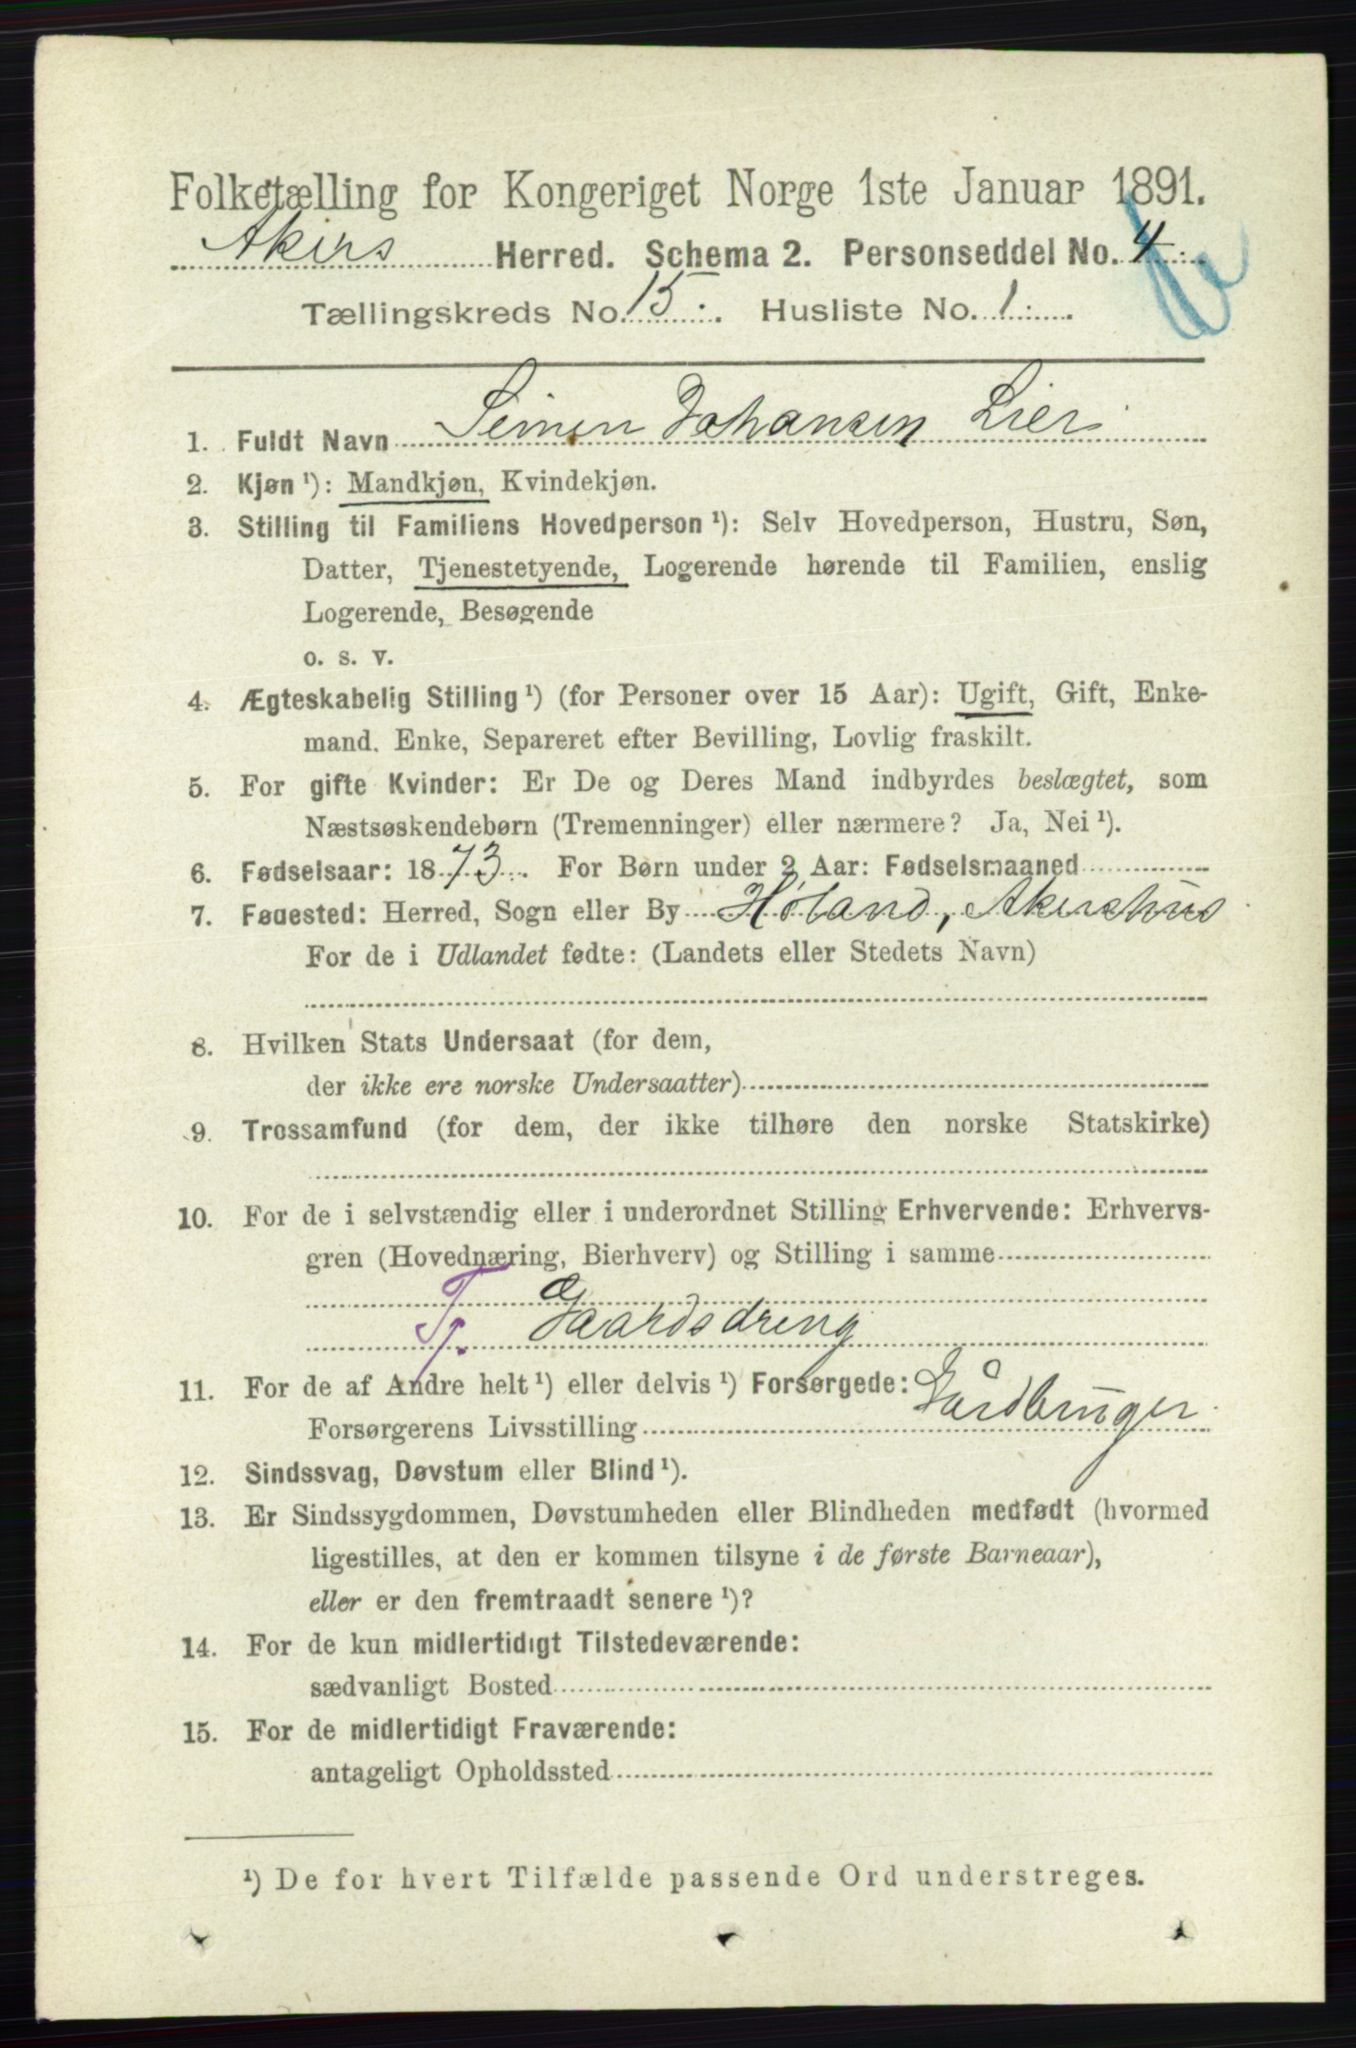 Folketælling for Kongeriget Norge 1ste Januar 1891.
Akers Herred. Schema 2. Personseddel No. 4
Tællingskreds No. 15. Husliste No. 1
1. Fuldt Navn Simen Johansen Lier
2. Kjøn ¹): Mandkjøn, Kvindekjøn.
3. Stilling til Familiens Hovedperson ¹): Selv Hovedperson, Hustru, Søn,
Datter, Tjenestetyende, Logerende hørende til Familien, enslig
Logerende, Besøgende
o. s. v.
4. Ægteskabelig Stilling ¹) (for Personer over 15 Aar): Ugift, Gift, Enke-
mand, Enke, Separeret efter Bevilling, Lovlig fraskilt.
5. For gifte Kvinder: Er De og Deres Mand indbyrdes beslægtet, som
Næstsøskendebørn (Tremenninger) eller nærmere? Ja, Nei ¹).
6. Fødselsaar: 1873. For Børn under 2 Aar: Fødselsmaaned
7. Fødested: Herred, Sogn eller By Høland, Akershus
For de i Udlandet fødte: (Landets eller Stedets Navn)
8. Hvilken Stats Undersaat (for dem,
der ikke ere norske Undersaatter)
9. Trossamfund (for dem, der ikke tilhøre den norske Statskirke)
10. For de i selvstændig eller i underordnet Stilling Erhvervende: Erhvervs-
gren (Hovednæring, Bierhverv) og Stilling i samme
Tj. Gaardsdreng
11. For de af Andre helt ¹) eller delvis ¹) Forsørgede:
Forsørgerens Livsstilling Gårdbruger
12. Sindssvag, Døvstum eller Blind ¹).
13. Er Sindssygdommen, Døvstumheden eller Blindheden medfødt (hvormed
ligestilles, at den er kommen tilsyne i de første Barneaar),
eller er den fremtraadt senere ¹)?
14. For de kun midlertidigt Tilstedeværende:
sædvanligt Bosted
15. For de midlertidigt Fraværende:
antageligt Opholdssted
¹) De for hvert Tilfælde passende Ord understreges.